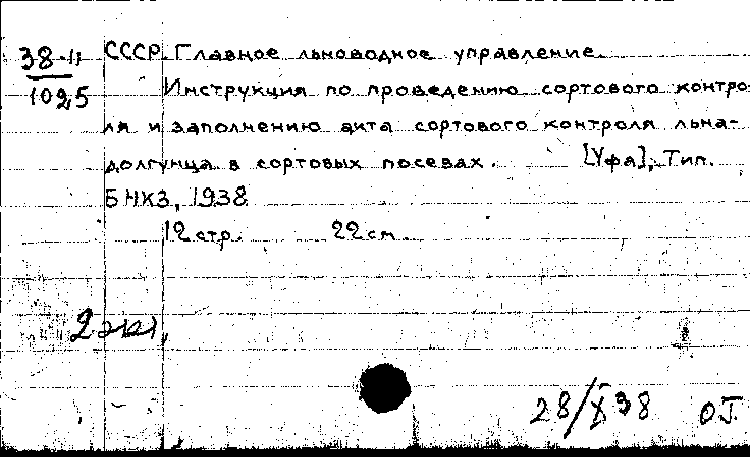 38-11
1025
СССР. Главное льноводное управление.
Инструкция по проведению сортового контро-
ля и заполнению акта сортового контроля льна-
долгунца в сортовых посевах. [Уфа], Тип.
БНКЗ, 1938
12 стр. 22 см
2 экз.
28/X 38 ОГ.